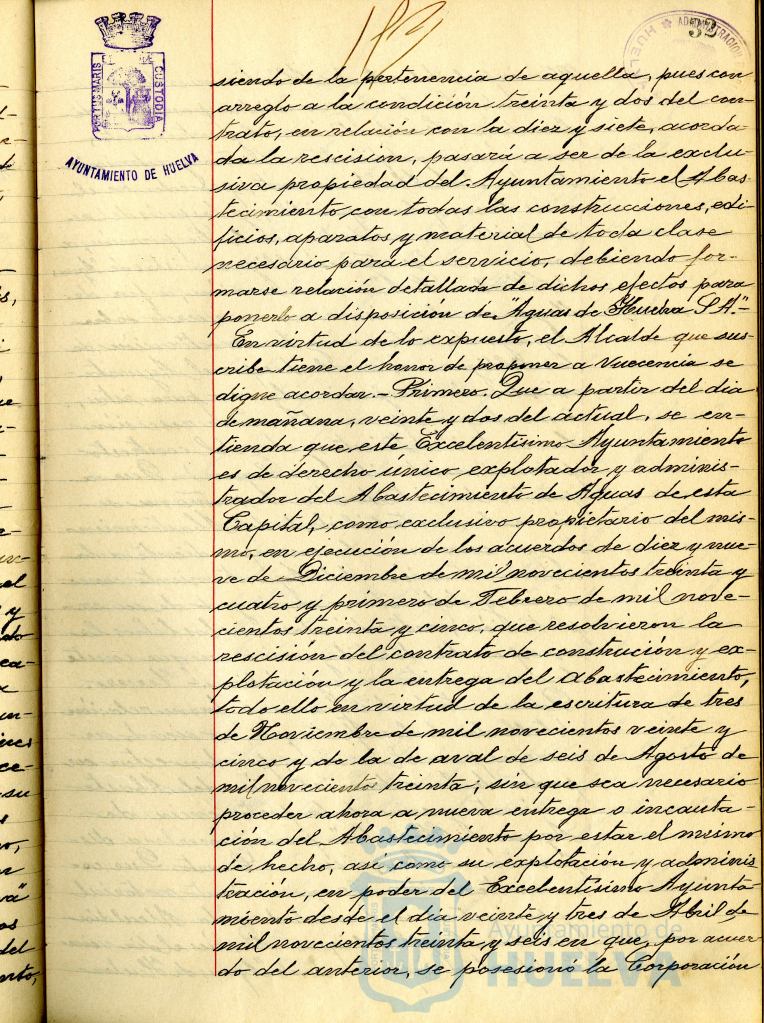 32
ADMINISTRACION
HUEL
PORTUS MARIS
CUSTODIA
AYUNTAMIENTO DE HUELVA
siendo de la pertenencia de aquella, pues con
arreglo a la condición treinta y dos del con-
trato, en relación con la diez y siete, acorda-
da la rescision, pasará a ser de la exclu-
siva propiedad del Ayuntamiento el Abas-
tecimiento, con todas las construcciones, edi-
ficios, aparatos y material de toda clase
necesario para el servicio, debiendo for-
marse relación detallada de dichos efectos para
ponerlo a disposición de "Aguas de Huelva S.A."-
En virtud de lo expuesto, el Alcalde que sus-
cribe tiene el honor de proponer a Vuecencia se
digne acordar.- Primero. Que a partir del dia
de mañana, veinte y dos del actual, se en-
tienda que este Excelentísimo Ayuntamiento
es de derecho único explotador y adminis-
trador del Abastecimiento de Aguas de esta
Capital, como exclusivo propietario del mis-
mo, en ejecución de los acuerdos de diez y nue-
ve de Diciembre de mil novecientos treinta y
cuatro y primero de Febrero de mil nove-
cientos treinta y cinco, que resolvieron la
rescisión del contrato de construción y ex-
plotación y la entrega del abastecimiento,
todo ello en virtud de la escritura de tres
de Noviembre de mil novecientos veinte y
cinco y de la de aval de seis de Agosto de
mil novecientos treinta; sin que sea necesario
proceder ahora a nueva entrega o incauta-
ción del Abastecimiento por estar el mismo
de hecho, así como su explotación y adminis
tración, en poder del Excelentísimo Ayunta-
miento desde el día veinte y tres de Abril de
mil novecientos treinta y seis en que, por acuer-
do del anterior, se posesionó la Corporación
Ayuntamiento de
HUELVA